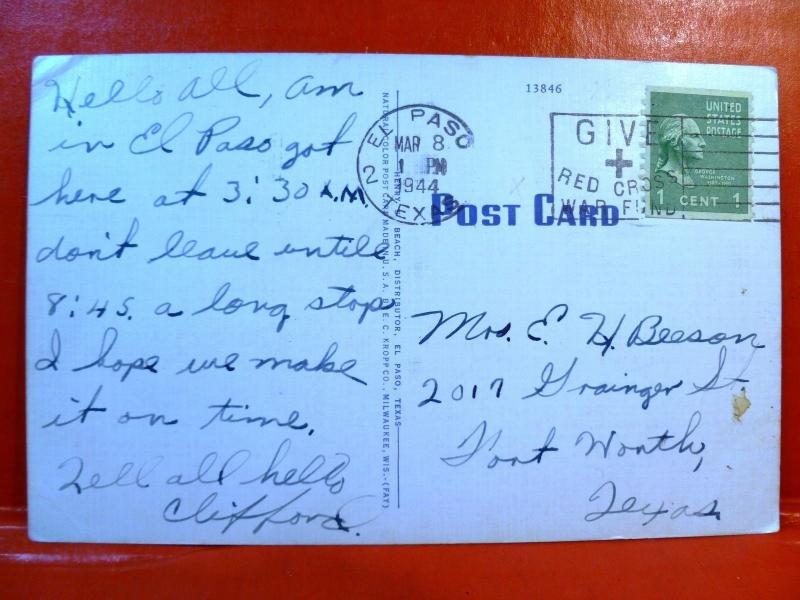 Hello all, am
in El Paso got
here at 3:30 A.M.
don't leave untile
8:45. a long stop
I hope we make
it on time.
Tell all hello
Clifford.
NATURAL COLOR POST CARD MADE IN U. S. A. BY E. C. KROPP CO., MILWAUKEE, WIS.-(FAY)
BEACH, DISTRIBUTOR, EL PASO, TEXAS
13846
EL PASO
MAR 8
1 PM
1944
2 TEXAS
GIVE
RED CROSS
WAR FUND
UNITED
STATES
POSTAGE
GEORGE
WASHINGTON
1 CENT 1
POST CARD
Mrs. E. H. Beeson
2017 Grainger St.
Fort Worth,
Texas